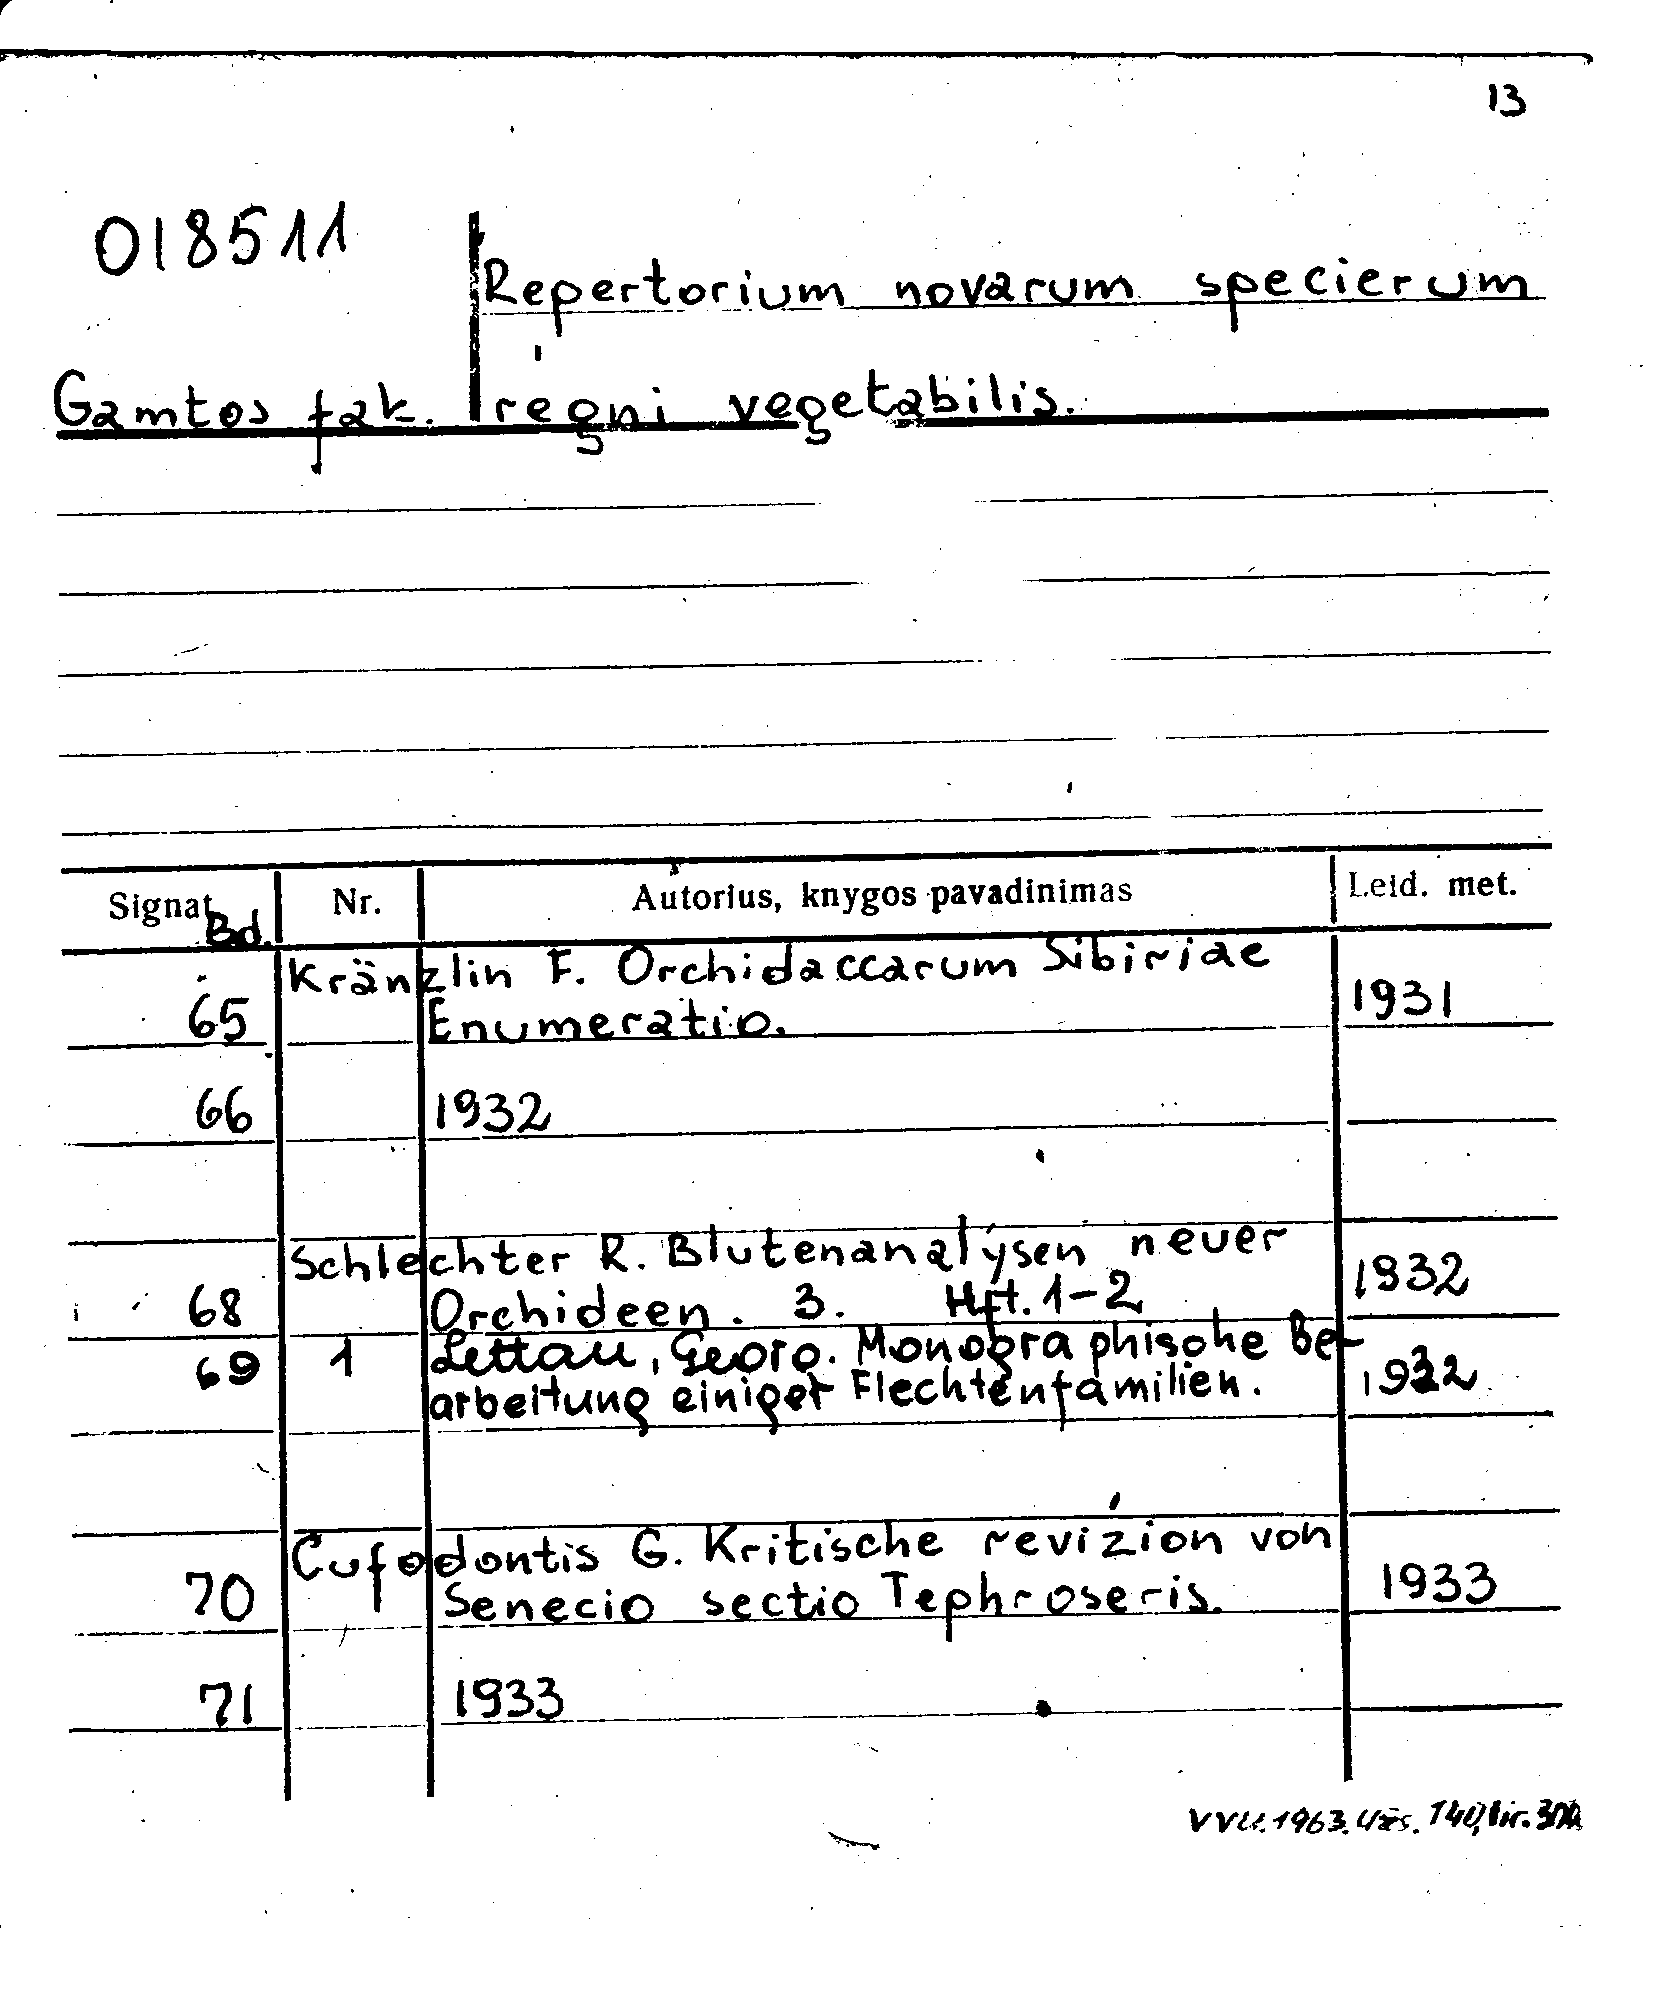 13
018511
Repertorium novarum specierum
Gamtos fak. regni vegetabilis.
Signat. Nr. Autorius, knygos pavadinimas Leid. met.
Bd.
Kränzlin F. Orchidaccarum Sibiriae
65 Enumeratio. 1931
66 1932
Schlechter R. Blutenanalysen neuer
68 Orchideen. 3. Hft. 1-2 1932
69 1 Lettau, Georg. Monographische Be-
arbeitung einiger Flechtenfamilien. 1932
Cufodontis G. Kritische revizion von
70 Senecio sectio Tephroseris. 1933
71 1933
VVU. 1963. Užs. 140, tir.